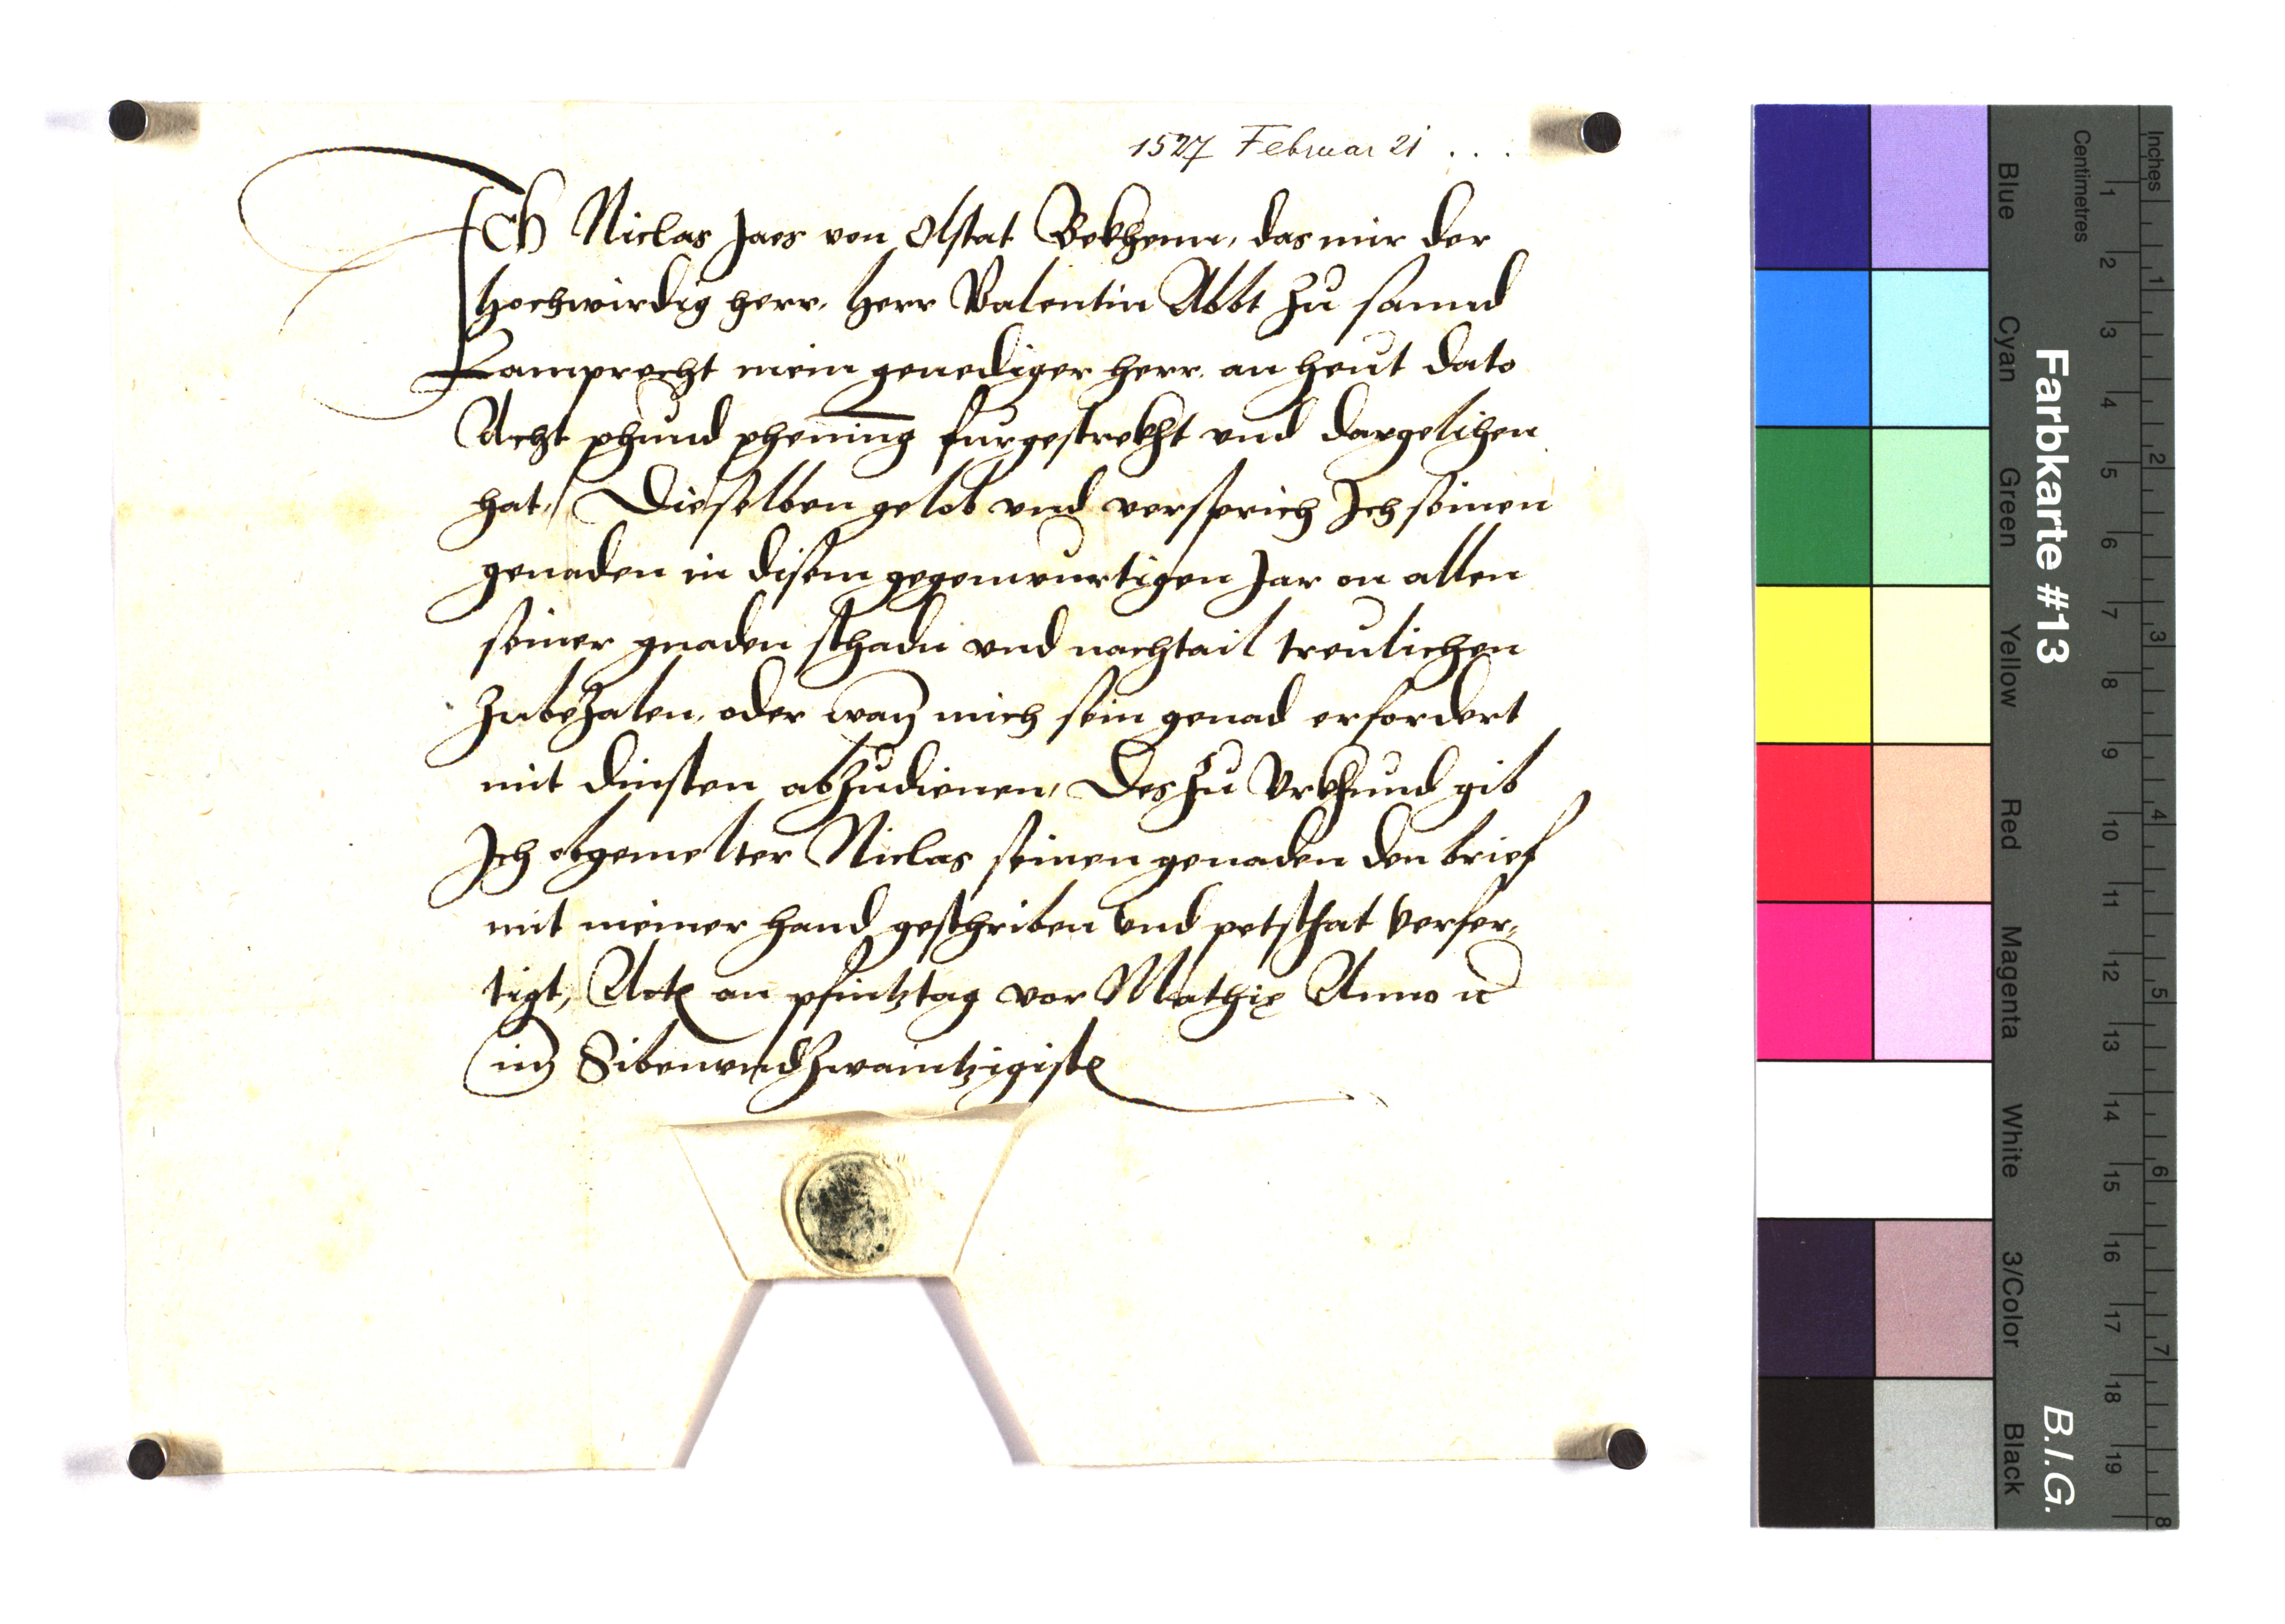 1527 Februar 21 . . .
Ich Niclas Jaes von Olstat Bekhenn, das mir der
hochwirdig herr, herr Valentin Abbt zu sannd
Lamprecht mein genediger herr an heut dato
Acht phund phening furgestrekht vnd dargelihen
hat, Dieselben gelob vnd versprich Ich seinen
genaden in disem gegenwurtigen Jar on allen
seiner gnaden schadn vnd nachtail treulichen
zubezalen, oder wan mich sein genad erfordert
mit dinsten abzudienen, Des zu Vrkhund gib
Ich obgemelter Niclas seinen genaden den brief
mit meiner hand geschriben vnd petschat verfer,
tigt, Acte an phintztag vor Mathie Anno
im Sibenundzwaintzigiste
Farbkarte #13
B.I.G.
Inches
Centimetres
1 2 3 4 5 6 7 8
1 2 3 4 5 6 7 8 9 10 11 12 13 14 15 16 17 18 19
Blue
Cyan
Green
Yellow
Red
Magenta
White
3/Color
Black